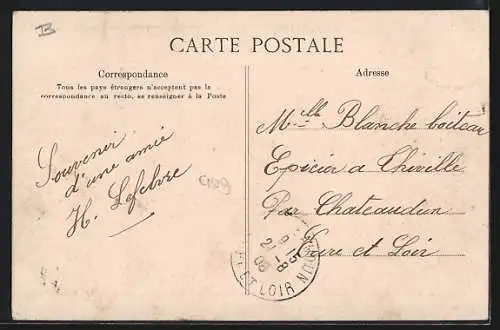 CARTE POSTALE
Correspondance
Tous les pays étrangers n'acceptent pas la
correspondance au recto, se renseigner à la Poste
Souvenir
d'une amie
H. Lefebvre
Adresse
Mlle Blanche boiteau
Epicier a Thiville
Par Chateaudun
Eure et Loir
21-8
08
ET LOIR